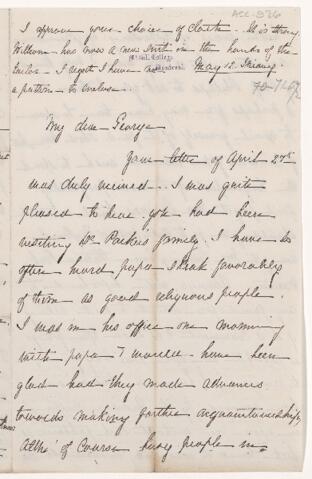 I approve your choice of cloth. It is strong
William has now a new Suit in the hands of the
Tailor - I regret I have no May 12. Friday
a pattern to enclose.
My dear George
Your letter of April 27th
was duly received. I was quite
pleased to hear you had been
visiting Dr Parkers family. I have so
often heard papa speak favorably
of them as good religious people.
I was in his office one morning
with papa & would have been
glad had they made advances
towards making further acquaintanceship
Altho' of course busy people in